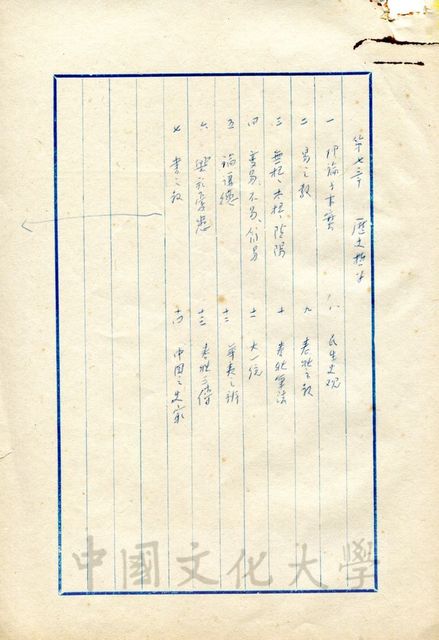 第七章 歷史哲学
一 論六藝
二 易之教
三 無極、太極、陰陽
四 變易、不易、簡易
五 論道德
六
七 書之教
八 民生史观
九 春秋之教
十 春秋筆法
十一 大一統
十二 華夷之辨
十三 春秋三傳
十四 中国之史家
中國文化大學